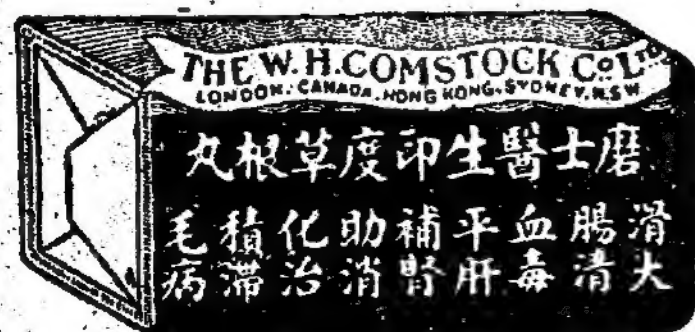 THE W. H. COMSTOCK Co. LTD
LONDON. CANADA. HONG KONG. SYDNEY. N.S.W
磨士醫生印度草根丸
滑大
腸清
血毒
平肝
補腎
助消
化治
積滯
毛病